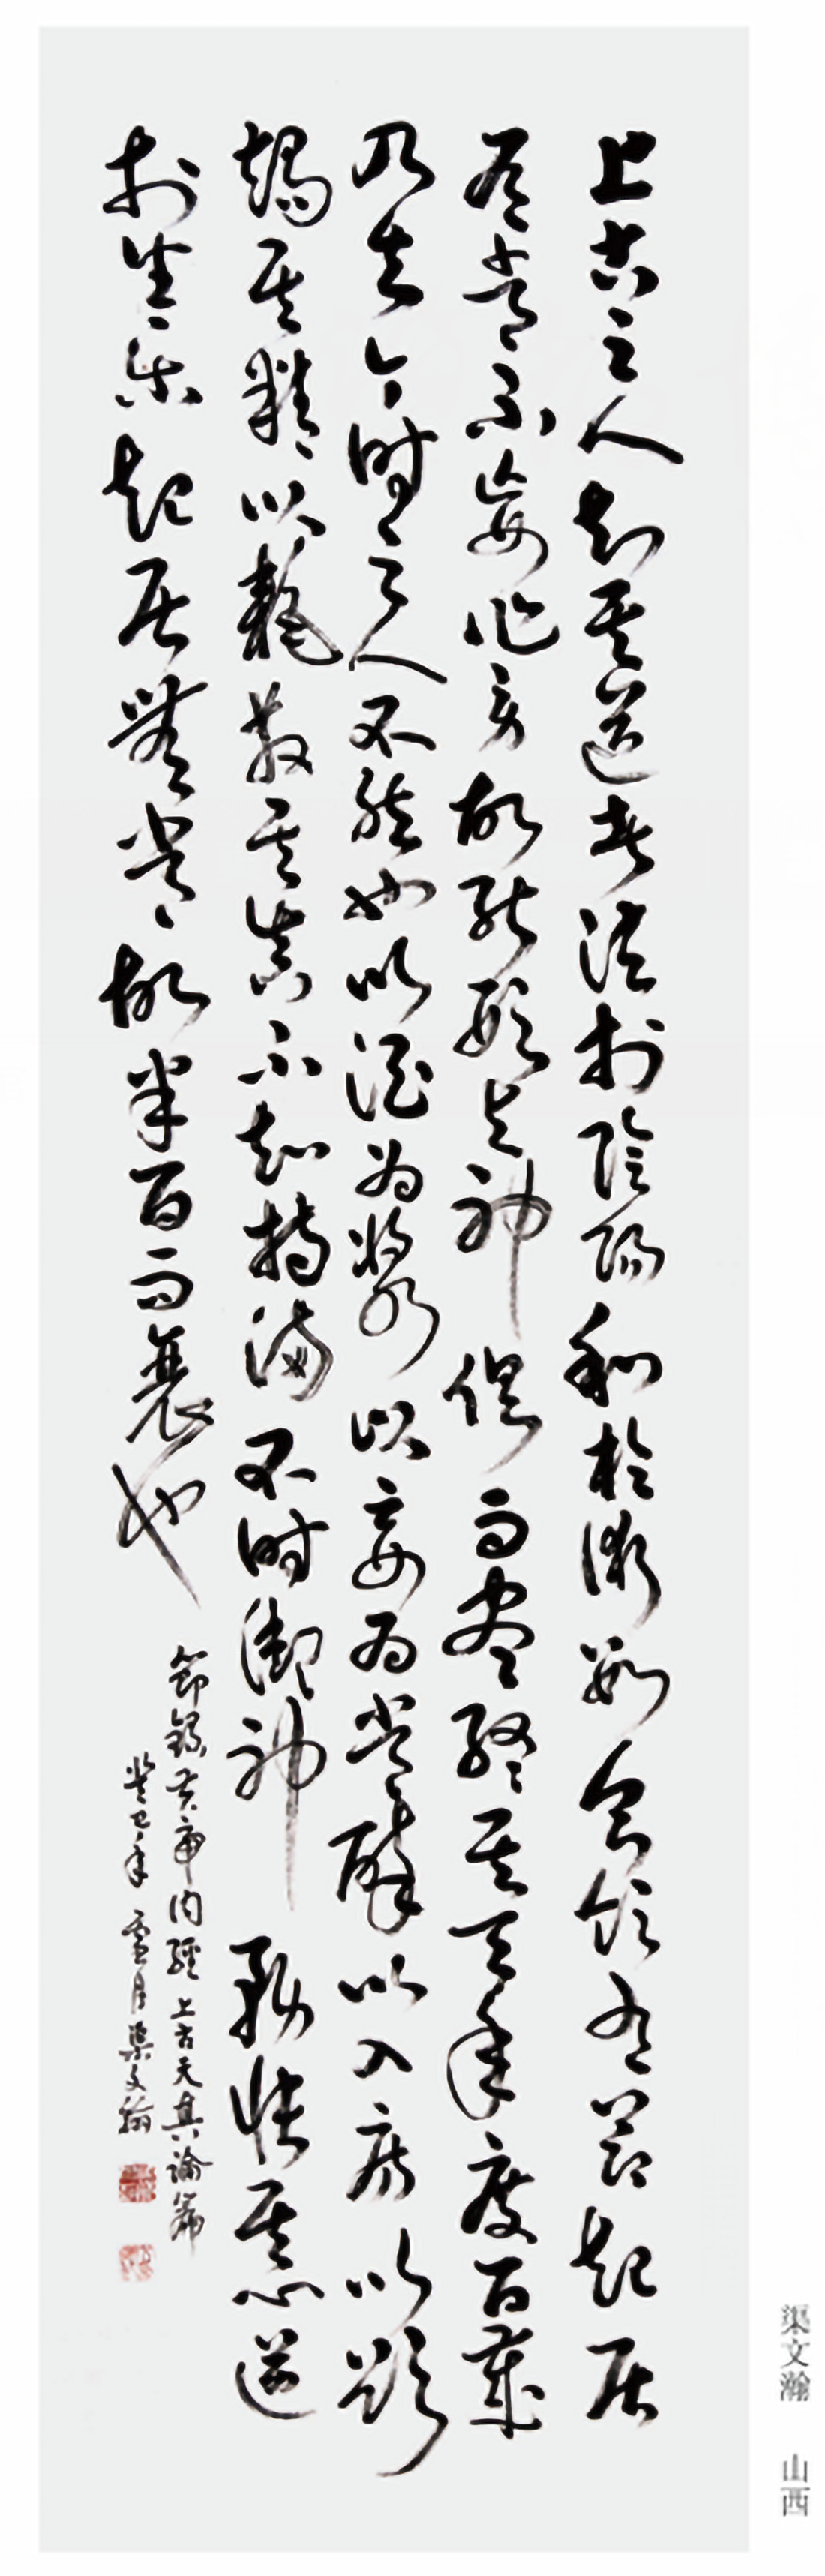 上古之人知其道者法於陰陽和於術數食飲有節起居
有常不妄作勞故能形與神俱而盡終其天年度百歲
乃去今時之人不然也以酒為漿以妄為常醉以入房以欲
竭其精以耗散其真不知持滿不時御神務快其心逆
於生樂起居無常故半百而衰也
節錄黃帝內經上古天真論篇
癸巳年月渠文瀚
渠文瀚 山西